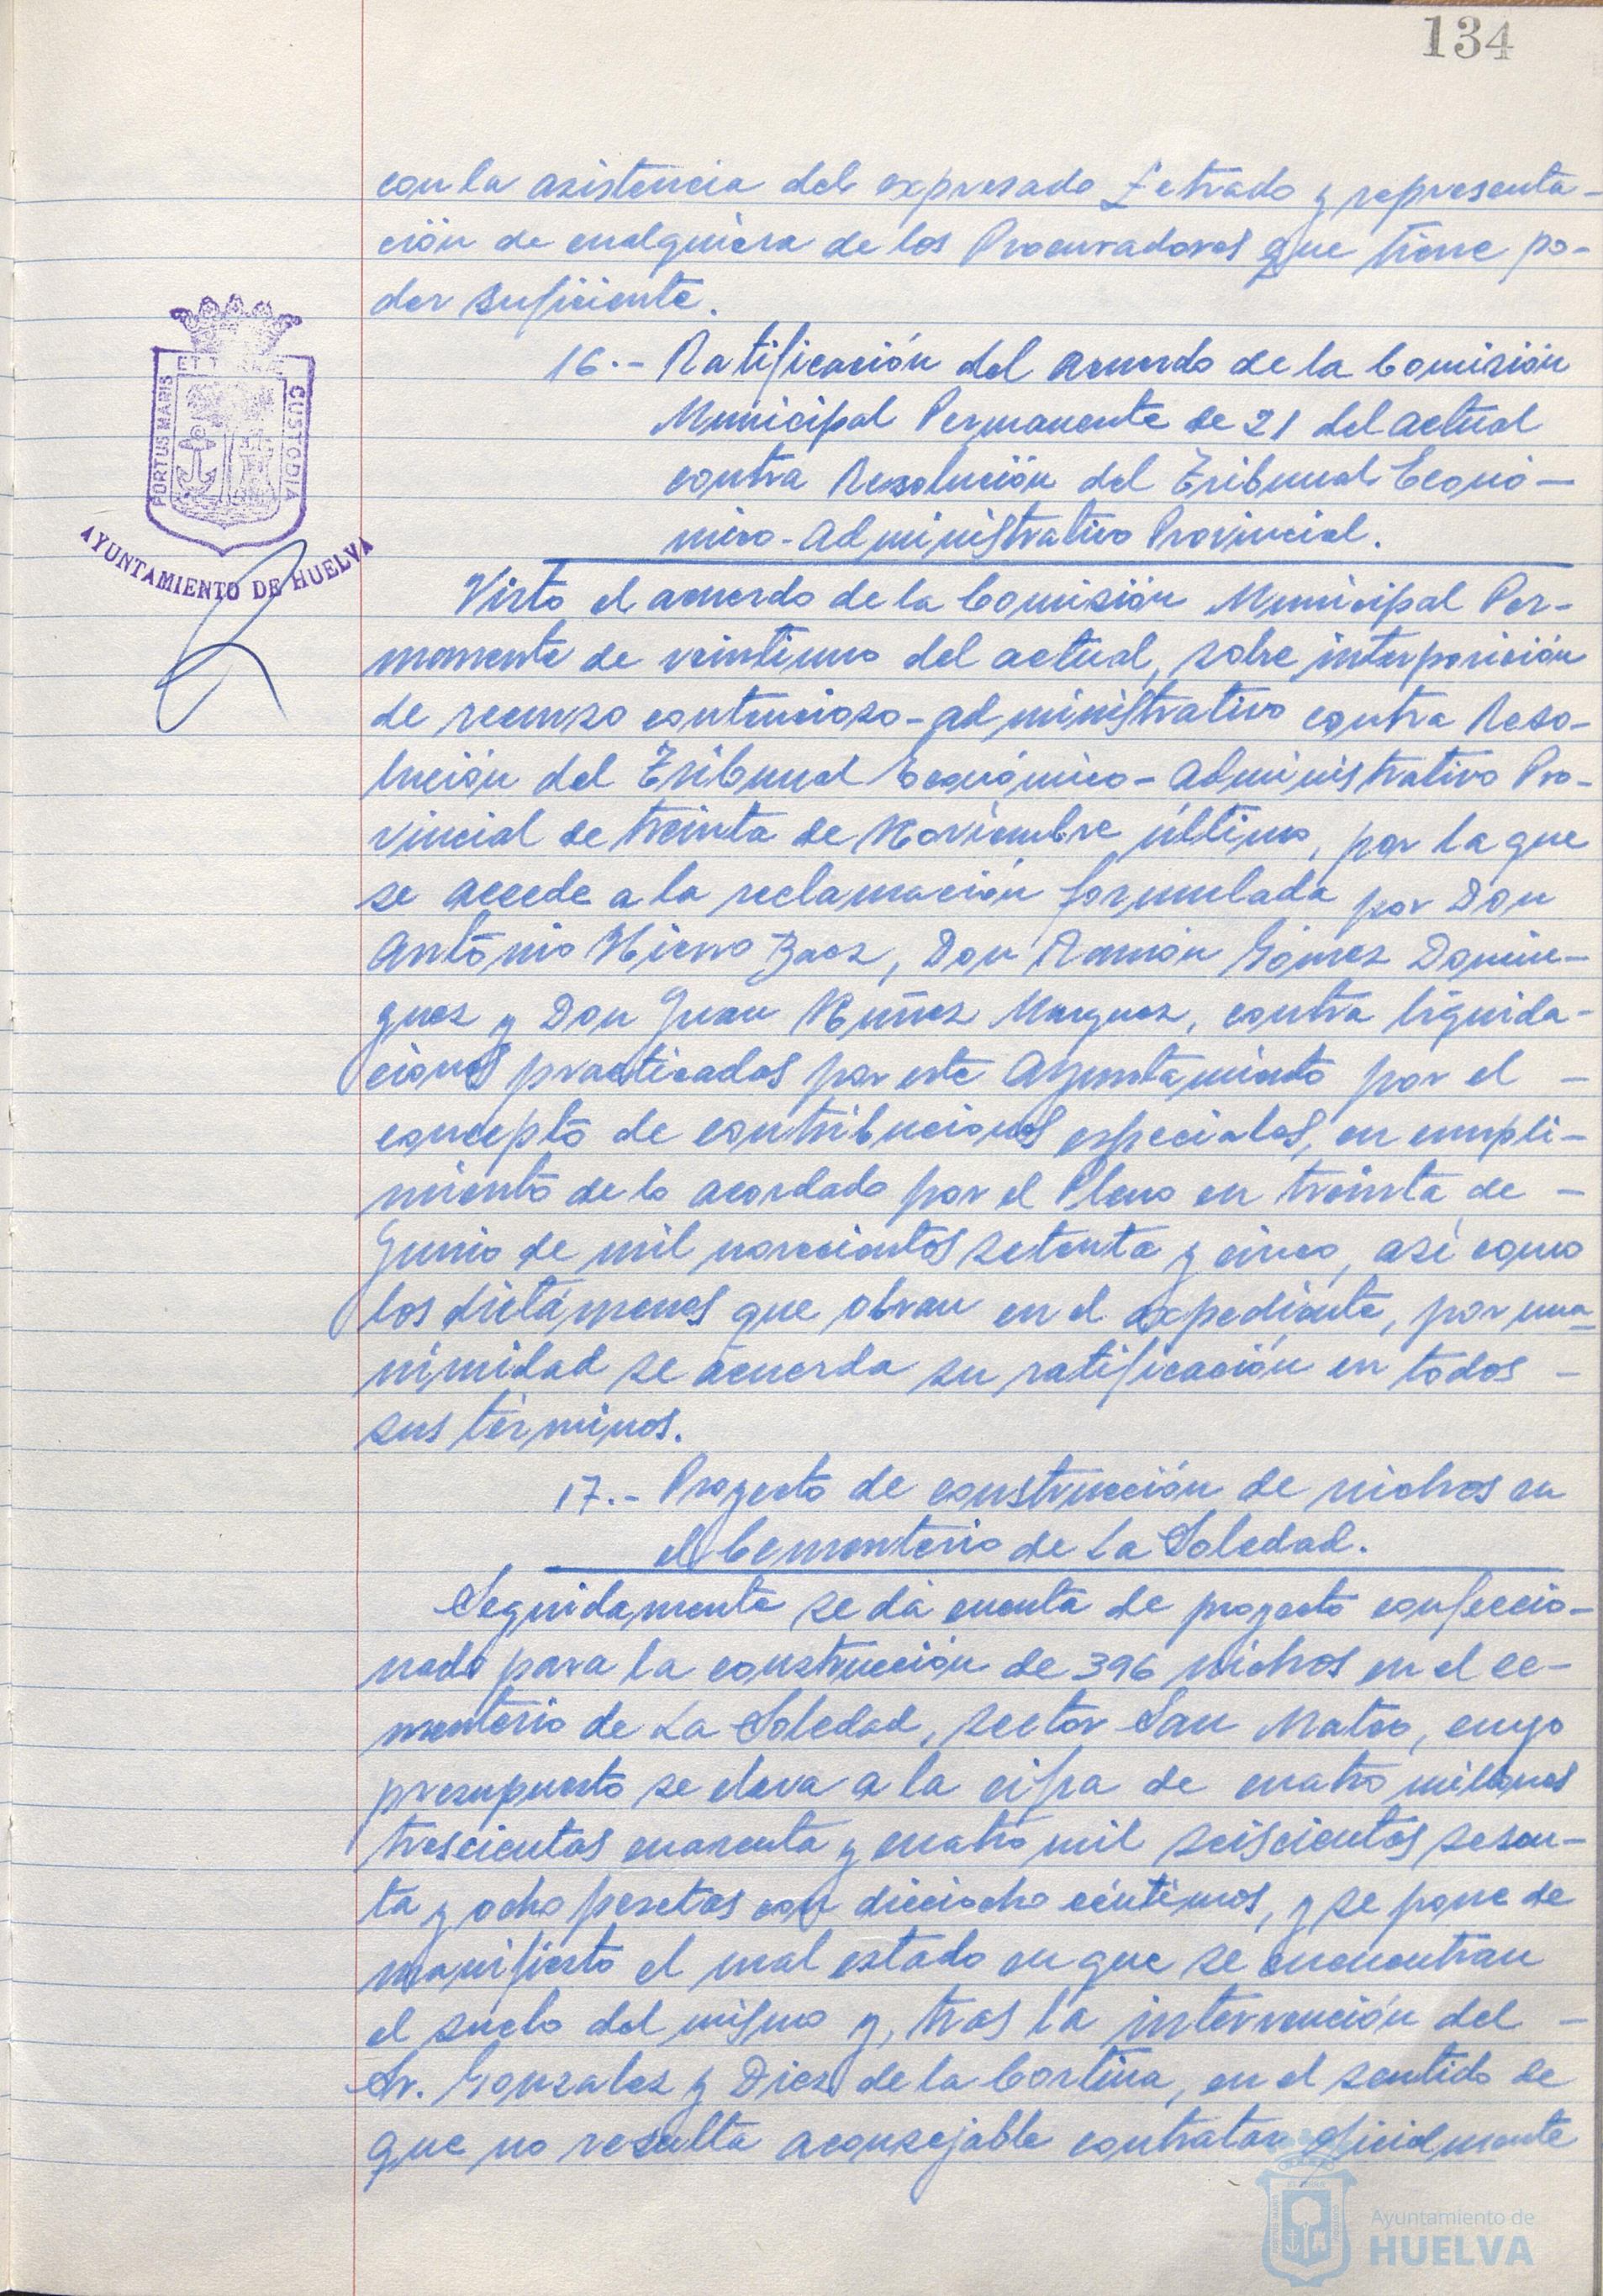 134
con la asistencia del expresado Letrado y representa-
ción de cualquiera de los Procuradores que tiene po-
der suficiente.
16.- Ratificación del acuerdo de la Comisión
Municipal Permanente de 21 del actual
contra Resolución del Tribunal Econó-
mico-Administrativo Provincial.
ET TERRAE
PORTUS MARIS
CUSTODIA
AYUNTAMIENTO DE HUELVA
Visto el acuerdo de la Comisión Municipal Per-
manente de veintiuno del actual, sobre interposición
de recurso contencioso-administrativo contra Reso-
lución del Tribunal Económico-Administrativo Pro-
vincial de treinta de Noviembre último, por la que
se accede a la reclamación formulada por Don
Antonio Hierro Baez, Don Ramón Gómez Domin-
guez y Don Juan Núñez Marquez, contra liquida-
ciones practicadas por este Ayuntamiento por el -
concepto de contribuciones especiales, en cumpli-
miento de lo acordado por el Pleno en treinta de -
Junio de mil novecientos setenta y cinco, así como
los dictámenes que obran en el expediente, por una-
nimidad se acuerda su ratificación en todos -
sus términos.
17.- Proyecto de construcción de nichos en
el Cementerio de La Soledad.
Seguidamente se dá cuenta de proyecto confeccio-
nado para la construcción de 396 nichos en el ce-
menterio de La Soledad, sector San Mateo, cuyo
presupuesto se eleva a la cifra de cuatro millones
trescientas cuarenta y cuatro mil seiscientas sesen-
ta y ocho pesetas con dieciocho céntimos, y se pone de
manifiesto el mal estado en que se encuentran
el suelo del mismo y, tras la intervención del -
Sr. Gonzalez y Diez de la Cortina, en el sentido de
que no resulta aconsejable contratar oficialmente
Ayuntamiento de
HUELVA